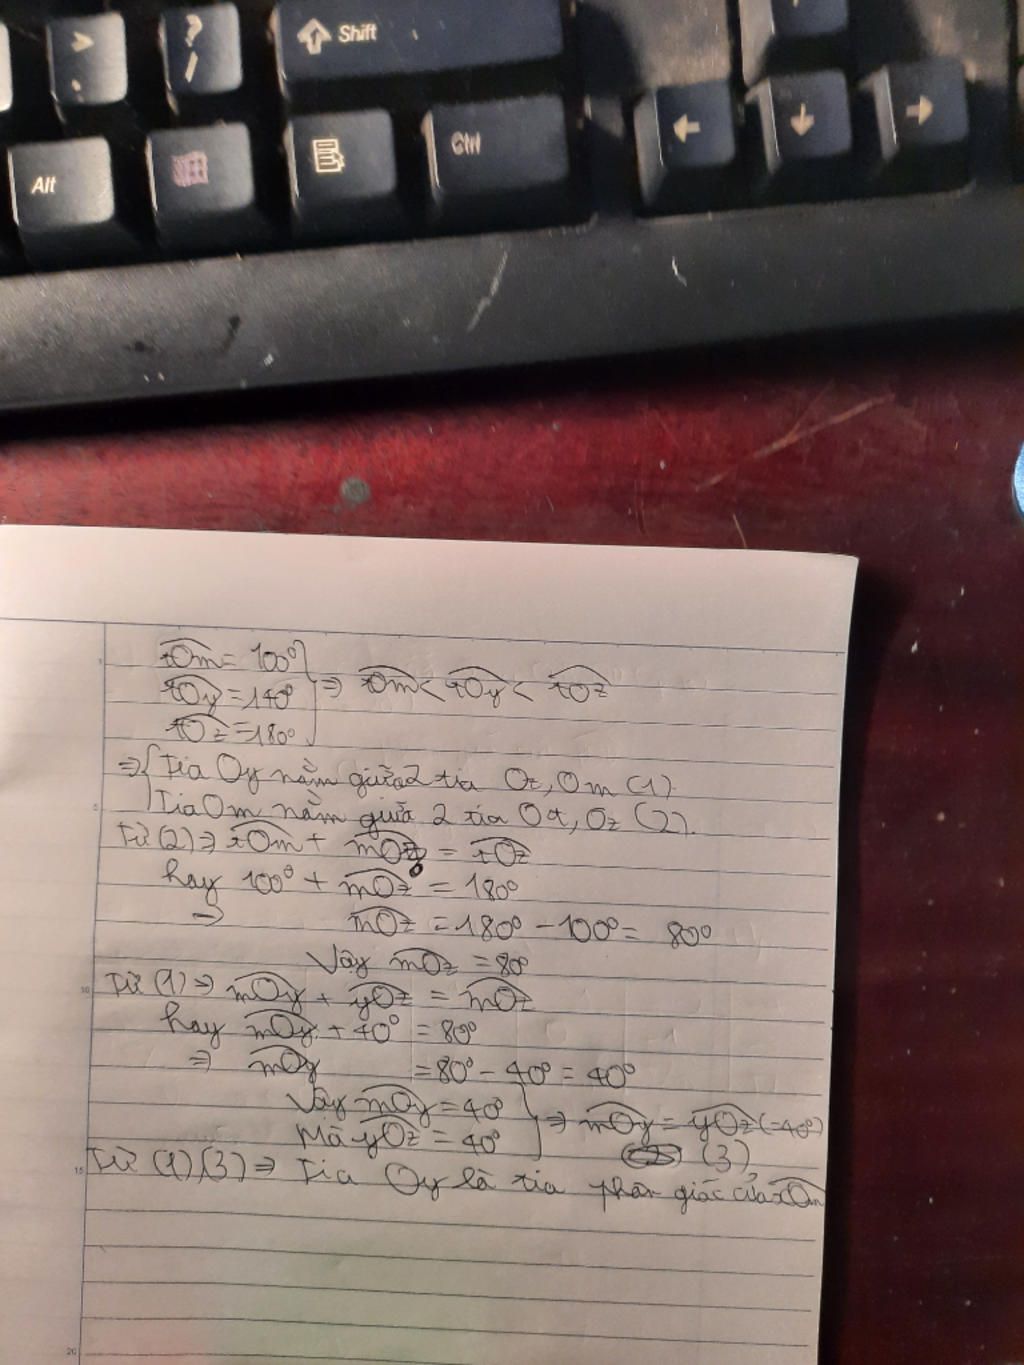 > .
? /
Shift
Alt
Ctrl
xOm = 100°
xOy = 140° ⇒ xOm < xOy < xOz
xOz = 180°
⇒ { Tia Oy nằm giữa 2 tia Oz, Om (1)
Tia Om nằm giữa 2 tia Ox, Oz (2).
Từ (2) ⇒ xOm + mOz = xOz
hay 100° + mOz = 180°
⇒ mOz = 180° - 100° = 80°
Vậy mOz = 80°
Từ (1) ⇒ mOy + yOz = mOz
hay mOy + 40° = 80°
⇒ mOy = 80° - 40° = 40°
Vậy mOy = 40° } ⇒ mOy = yOz (=40°)
Mà yOz = 40° (3)
Từ (1), (3) ⇒ Tia Oy là tia phân giác của zOm